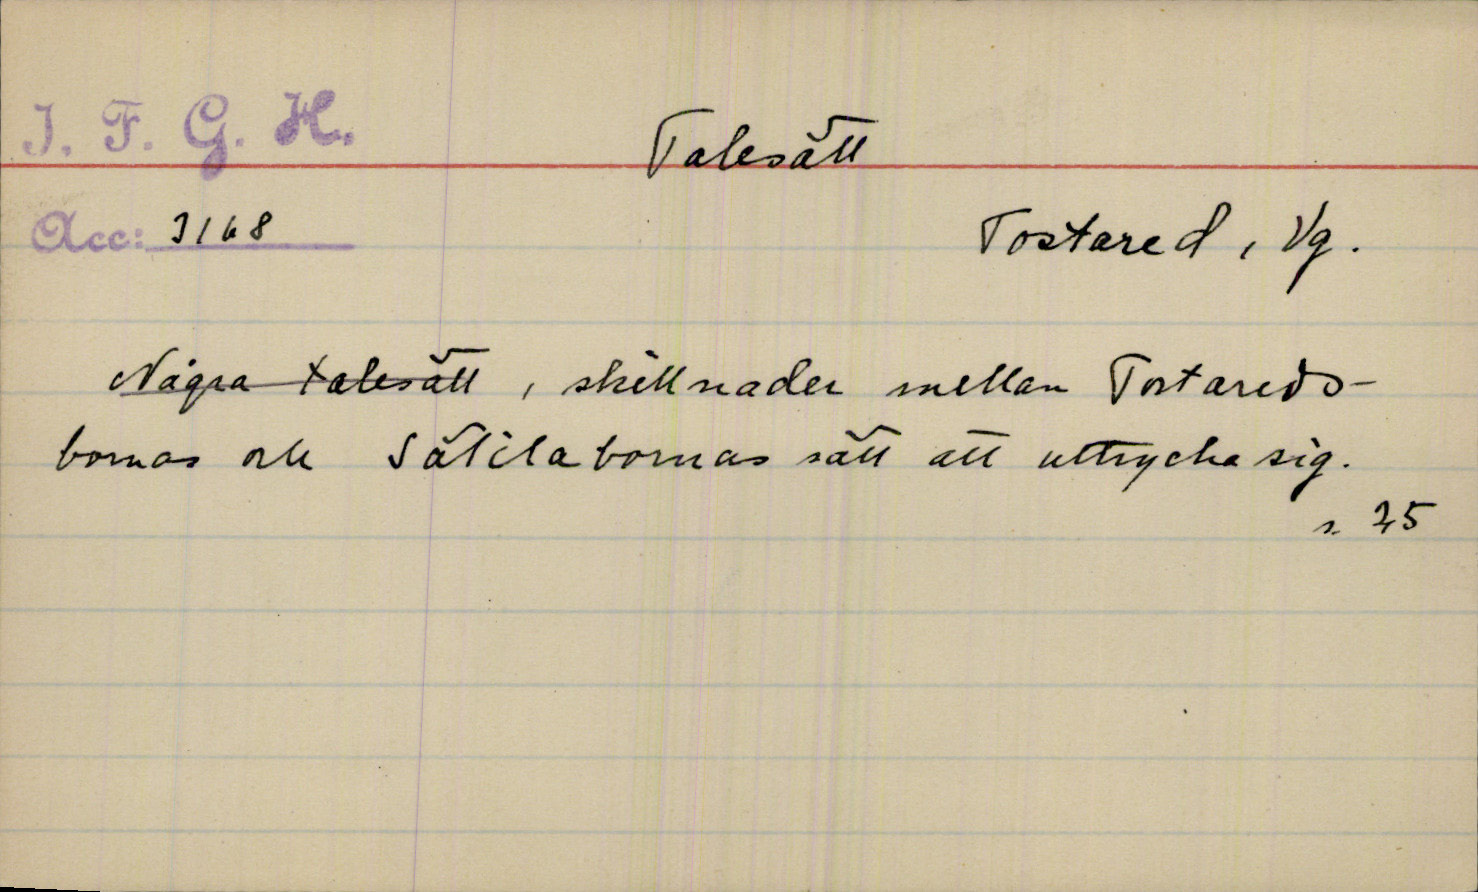 I. F. G. H.
Talesätt
Acc: 3168
Tostared, Vg.
Några talesätt, skillnader mellan Tostareds-
bornas och Sätilabornas sätt att uttrycka sig.
s. 35